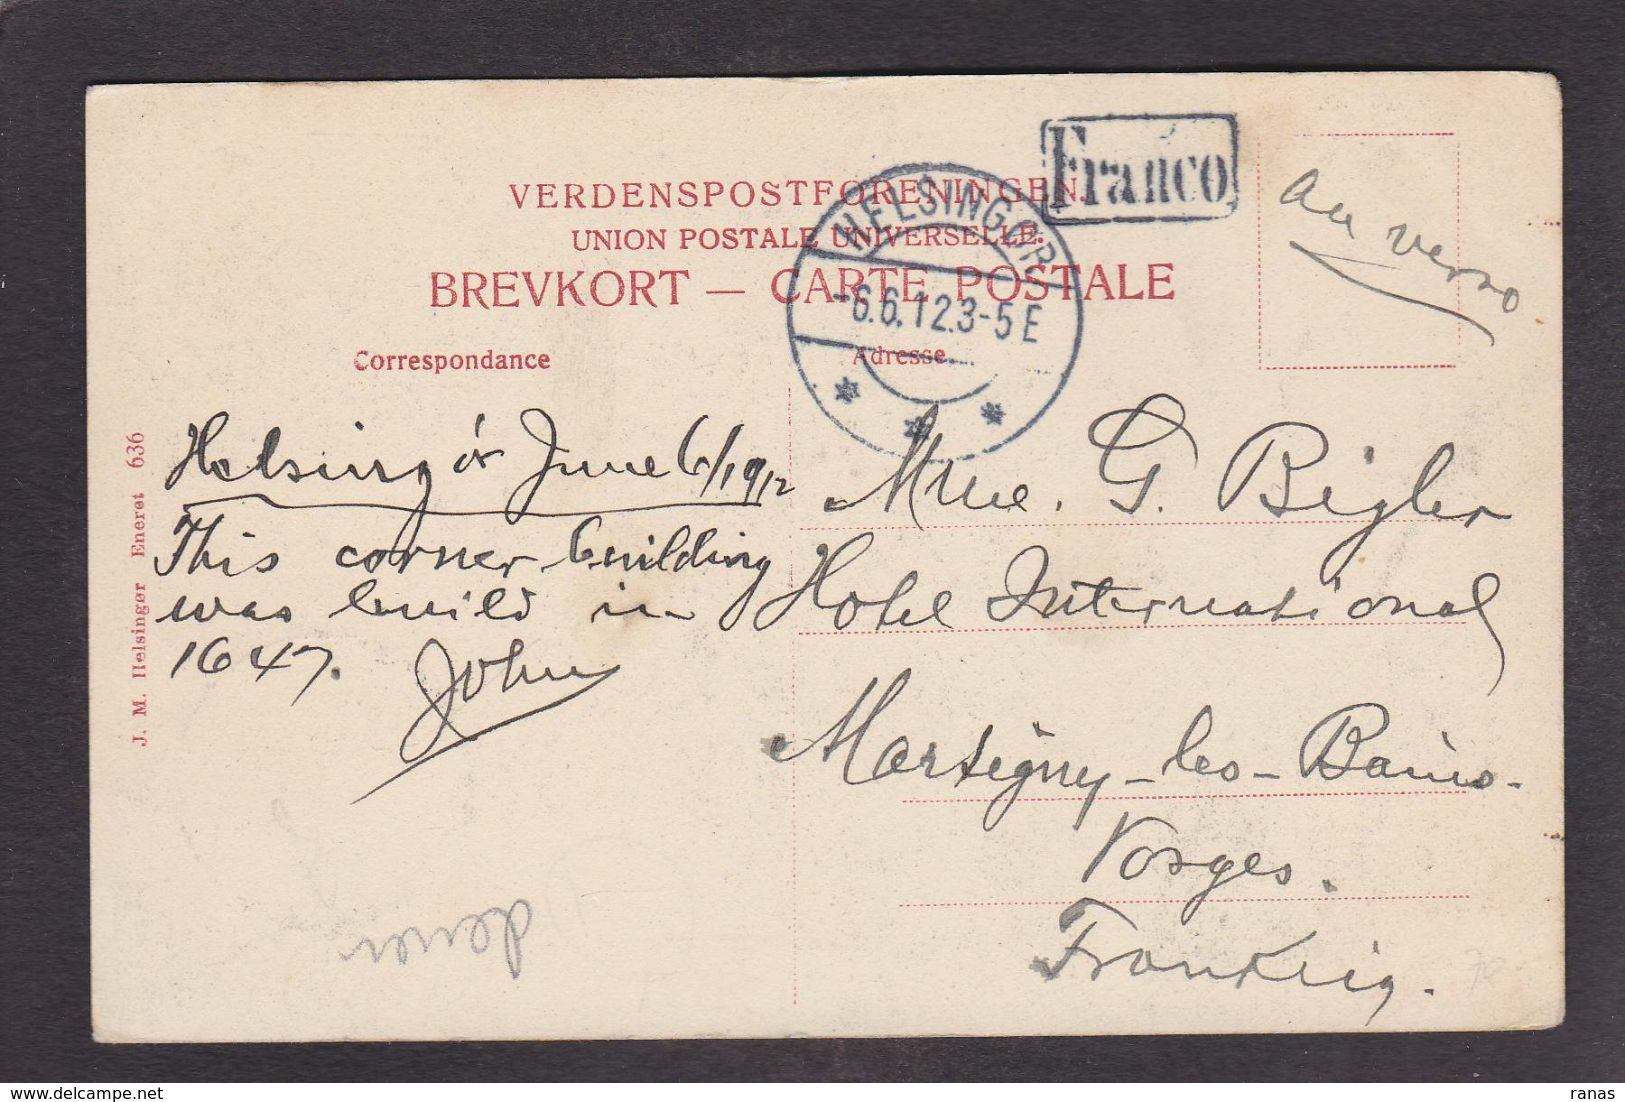 Franco
VERDENSPOSTFORENINGEN.
UNION POSTALE UNIVERSELLE.
BREVKORT — CARTE POSTALE
HELSINGØR
-6.6.12.3-5 E
au verso
Correspondance
Adresse.
Helsingör June 6/1912
This corner building
was build in
1647.
John
Mme. G. Bigler
Hotel International
Martigny-les-Bains.
Vosges.
Frankrig.
J. M. Helsingør Eneret 636
delcampe.net
ranas